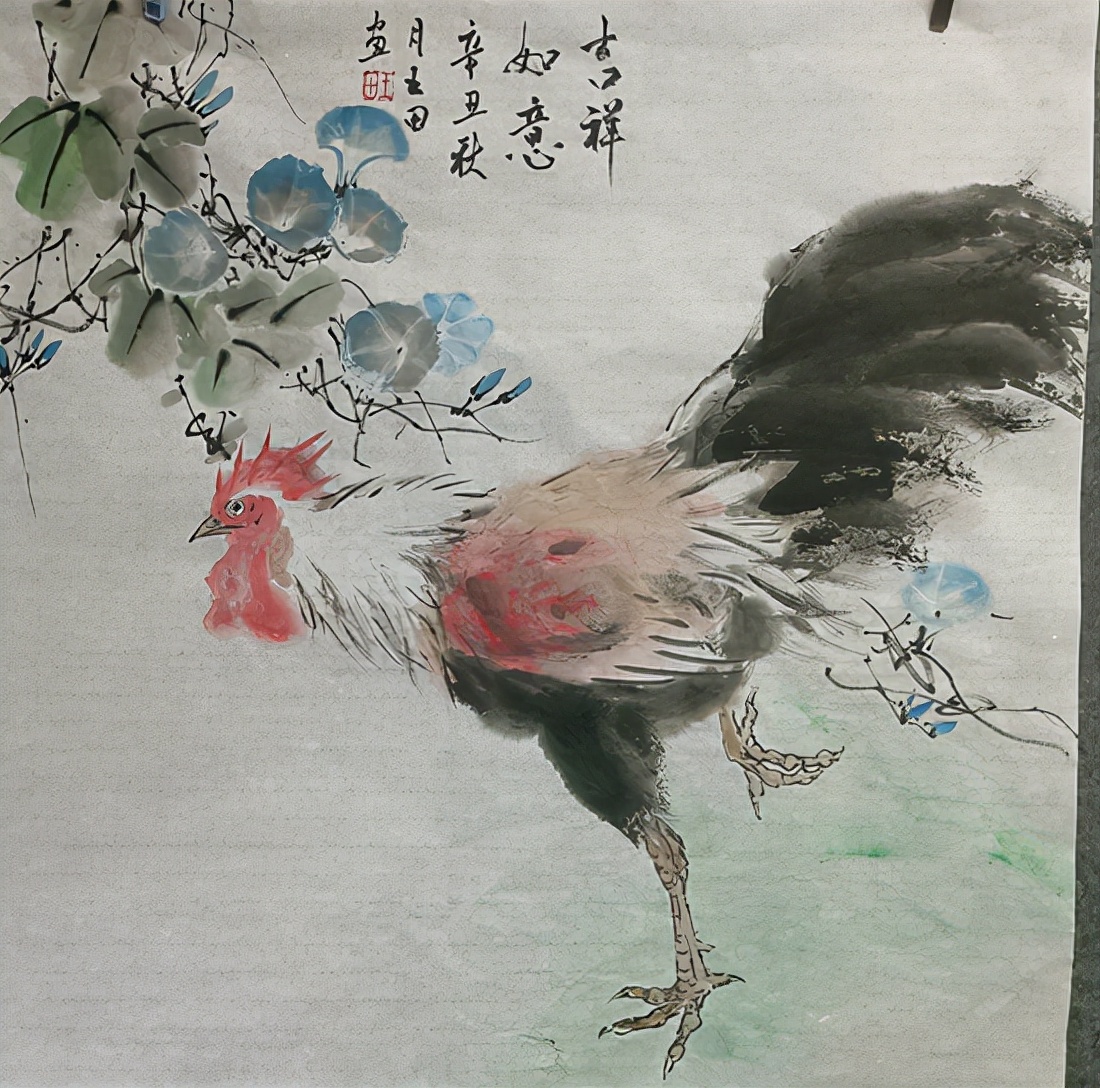 吉祥
如意
辛丑秋
月王田
画
王田